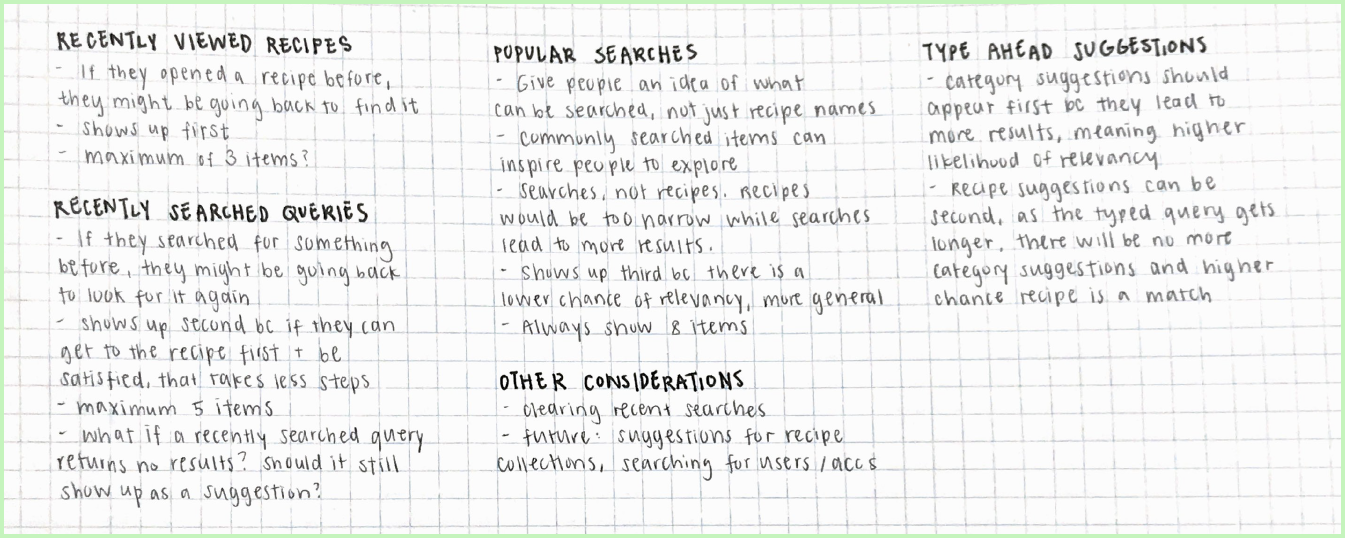 RECENTLY VIEWED RECIPES
- If they opened a recipe before,
they might be going back to find it
- shows up first
- maximum of 3 items?
RECENTLY SEARCHED QUERIES
- If they searched for something
before, they might be going back
to look for it again
- shows up second bc if they can
get to the recipe first + be
satisfied, that takes less steps
- maximum 5 items
- what if a recently searched query
returns no results? should it still
show up as a suggestion?
POPULAR SEARCHES
- Give people an idea of what
can be searched, not just recipe names
- commonly searched items can
inspire people to explore
- searches, not recipes. Recipes
would be too narrow while searches
lead to more results.
- shows up third bc there is a
lower chance of relevancy, more general
- Always show 8 items
OTHER CONSIDERATIONS
- clearing recent searches
- future: suggestions for recipe
collections, searching for users / accs
TYPE AHEAD SUGGESTIONS
- category suggestions should
appear first bc they lead to
more results, meaning higher
likelihood of relevancy
- Recipe suggestions can be
second, as the typed query gets
longer, there will be no more
category suggestions and higher
chance recipe is a match